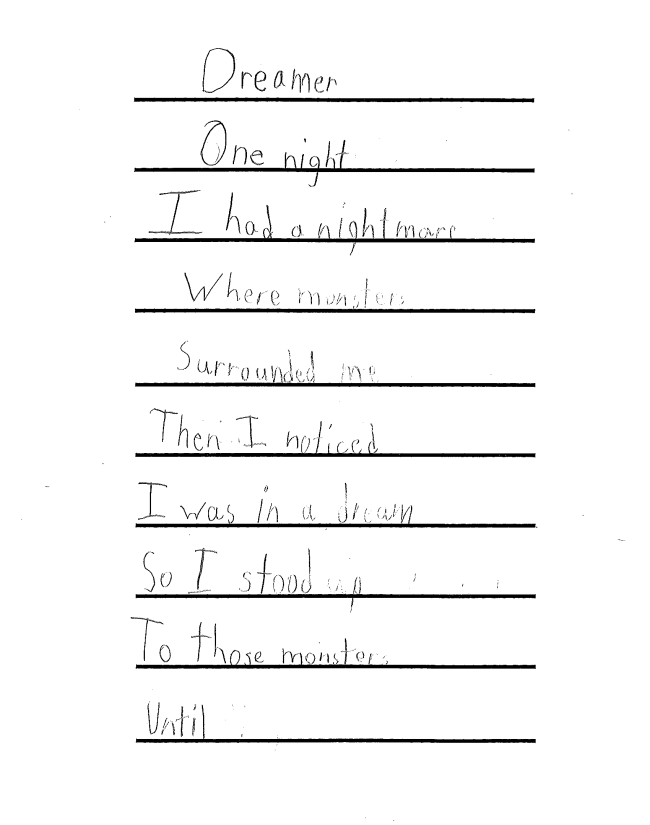 Dreamer
One night
I had a nightmare
Where monsters
Surrounded me
Then I noticed
I was in a dream
So I stood up
To those monsters
Until